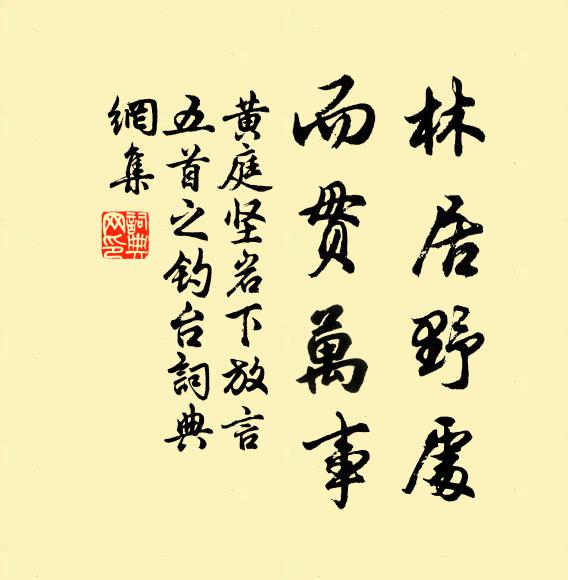 林居野處
而貫萬事
黄庭坚岩下放言
五首之钓台詞典
網集
詞典网印